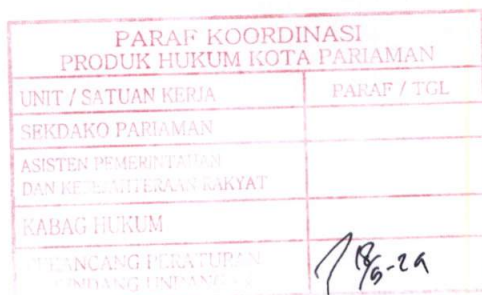 PARAF KOORDINASI
PRODUK HUKUM KOTA PARIAMAN
UNIT / SATUAN KERJA PARAF / TGL
SEKDAKO PARIAMAN
ASISTEN PEMERINTAHAN
DAN KESEJAHTERAAN RAKYAT
KABAG HUKUM
PERATURAN
UNDANG